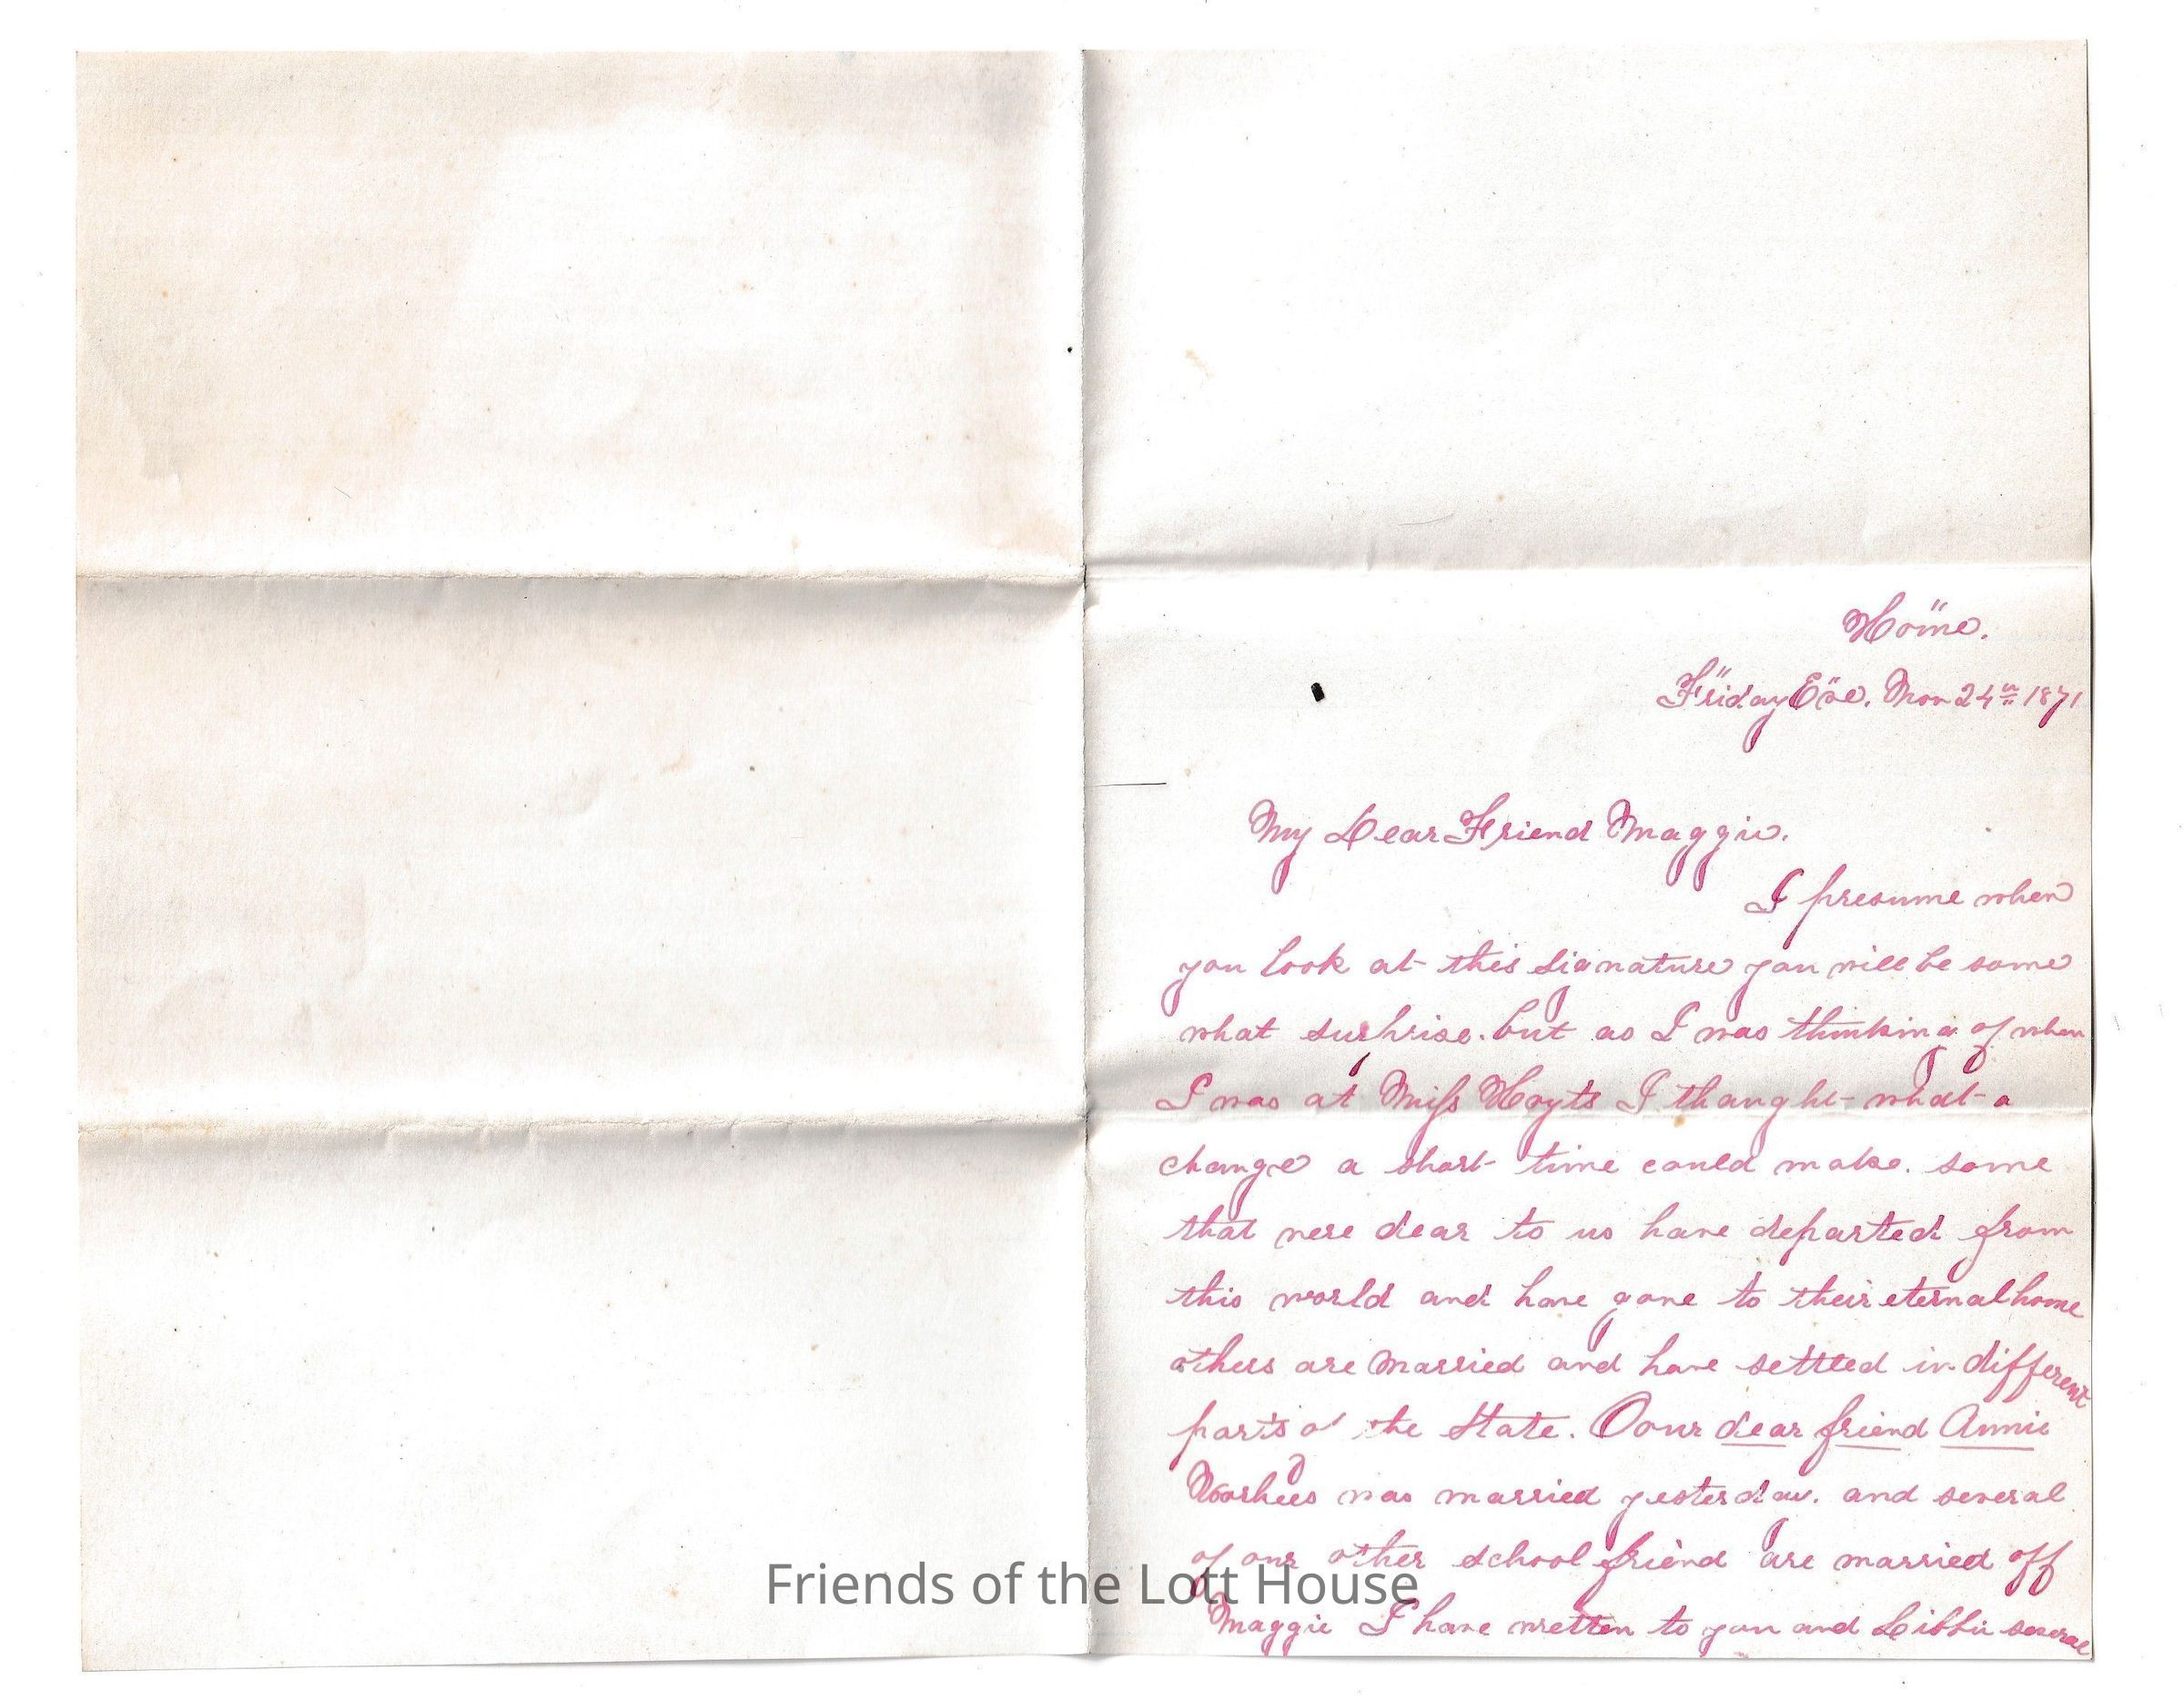 Home.
Friday Eve. Nov 24th 1871
My Dear Friend Maggie.
I presume when
you look at this signature you will be some
what surprise. but as I was thinking of when
I was at Miss Hoyts I thought what a
change a short time could make. some
that were dear to us have departed from
this world and have gone to their eternal home
others are married and have settled in different
parts of the State. Oour dear friend Annie
Voorhees was married yesterday. and several
of our other school friend are married off
Maggie I have wretten to you and Libbie several
Friends of the Lott House